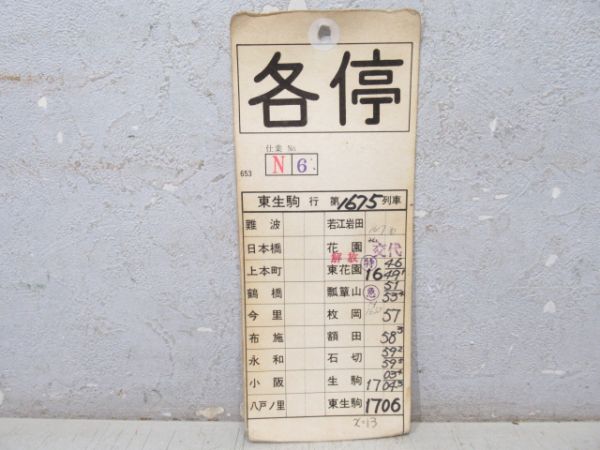 各停
仕業 No.
N 6
653
東生駒 行 第1675列車
難波 若江岩田
日本橋 花園 交代
解放 46
上本町 東花園 16 49
鶴橋 瓢簞山 急 51 53
今里 枚岡 57
布施 額田 58⁵
永和 石切 59² 59
小阪 生駒 03 1704⁵
八戸ノ里 東生駒 1706